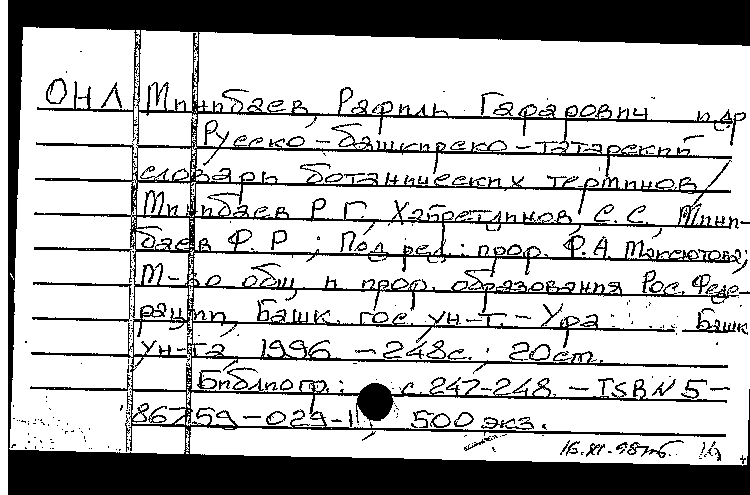 ОНЛ Минибаев, Рафиль Гафарович и др
Русско-башкирско-татарский
словарь ботанических терминов /
Минибаев Р. Г., Хабретдинов, С. С., Мини-
баев Ф. Р.; Под ред.: проф. Ф. А. Максютова;
М-во общ. и проф. образования Рос. Феде-
рации, Башк. гос. ун-т. - Уфа: Башк
ун-та, 1996. - 248с.; 20см.
Библиогр.: с. 247-248. - ISBN 5-
86759-029-1, 500 экз.
16.XI.98